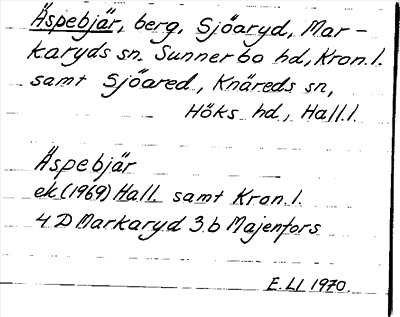 Äspebjär, berg, Sjöaryd, Mar-
karyds sn, Sunnerbo hd, Kron.l.
samt Sjöared, Knäreds sn,
Höks hd, Hall.l.
Äspebjär
ek (1969) Hall. samt Kron.l.
4 D Markaryd 3 b Majenfors
E. LI 1970.